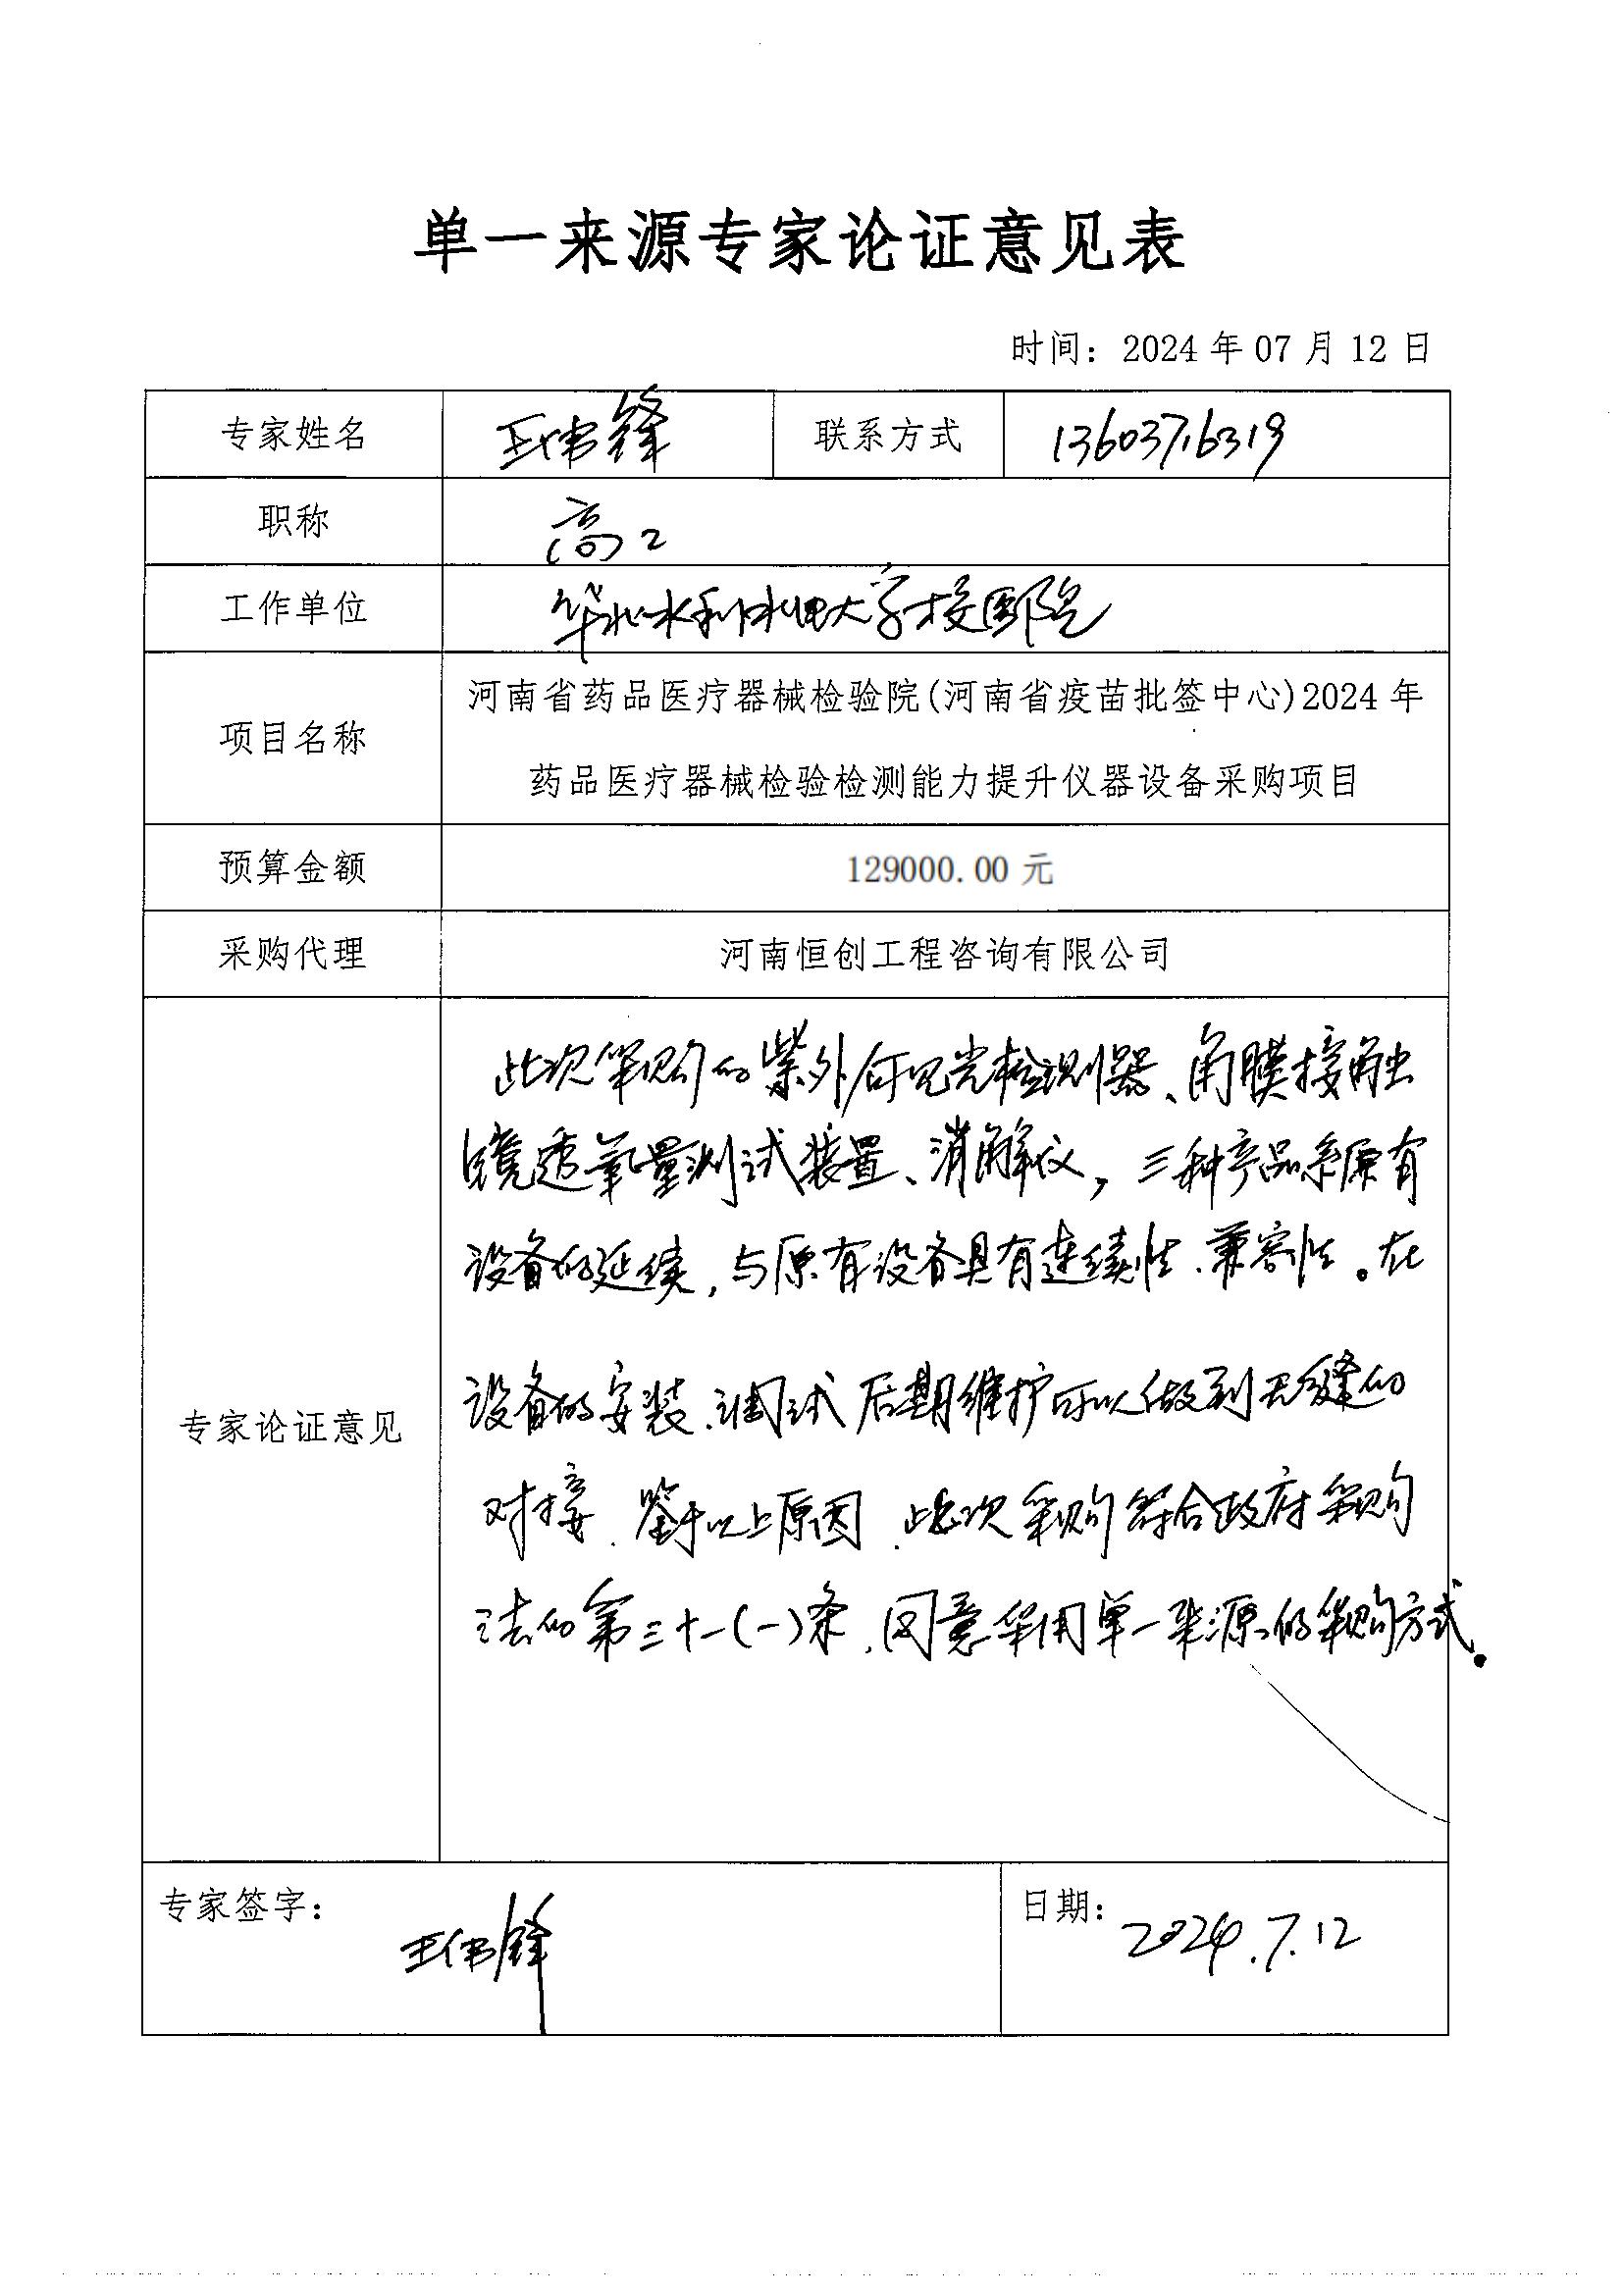 单一来源专家论证意见表
时间：2024 年 07 月 12 日
专家姓名 王伟锋 联系方式 13603716319
职称 高工
工作单位 华北水利水电大学校医院
项目名称 河南省药品医疗器械检验院(河南省疫苗批签中心)2024 年
药品医疗器械检验检测能力提升仪器设备采购项目
预算金额 129000.00 元
采购代理 河南恒创工程咨询有限公司
专家论证意见
此次采购的紫外/可见光检测器、角膜接触
镜透氧量测试装置、消解仪，三种产品系原有
设备的延续，与原有设备具有连续性、兼容性。在
设备的安装、调试后期维护可以做到无缝的
对接、鉴于以上原因、此次采购符合政府采购
法的第三十一(一)条，同意采用单一来源的采购方式。
专家签字： 王伟锋 日期： 2024.7.12